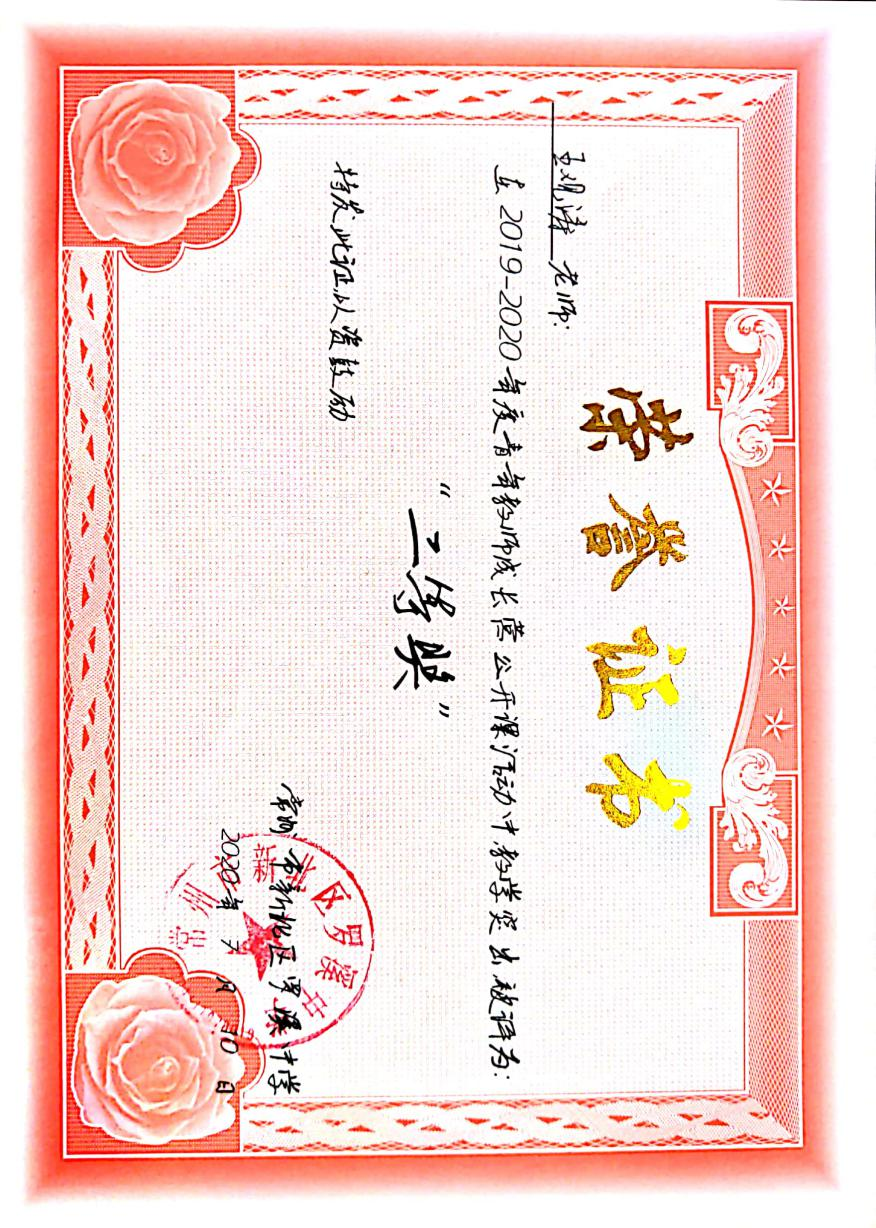 荣誉证书
王观涛 老师:
在2019-2020年度青年教师成长营公开课活动中,教学突出,被评为:
“二等奖”
特发此证,以资鼓励
常州市新北区罗溪中学
2020年7月10日
常州市新北区罗溪中学